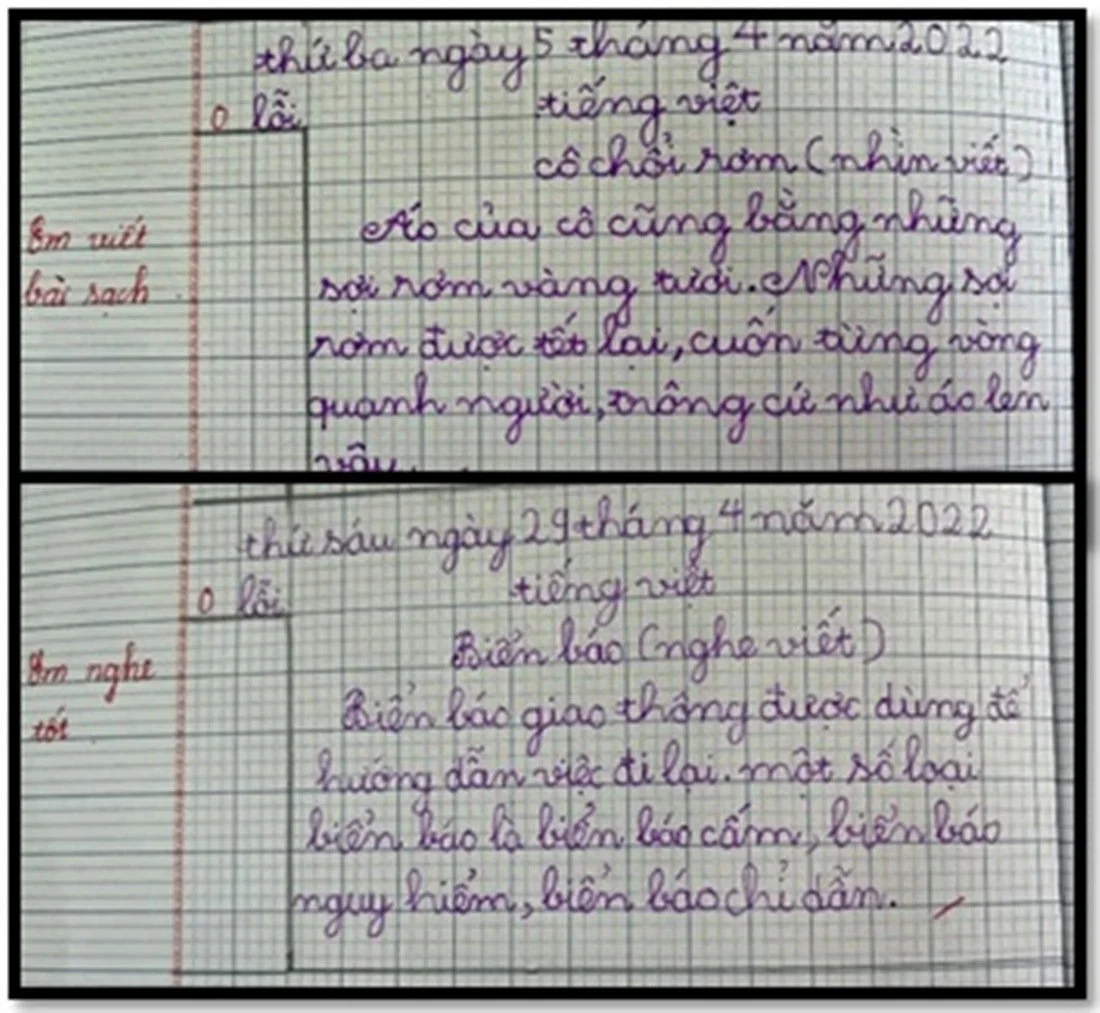 thứ ba ngày 5 tháng 4 năm 2022
0 lỗi tiếng việt
cô chổi rơm (nhìn viết)
Em viết
bài sạch
Áo của cô cũng bằng những
sợi rơm vàng tươi. Những sợi
rơm được tết lại, cuốn từng vòng
quanh người, trông cứ như áo len
vậy.
thứ sáu ngày 29 tháng 4 năm 2022
0 lỗi tiếng việt
Biển báo (nghe viết)
Em nghe
tốt
Biển báo giao thông được dùng để
hướng dẫn việc đi lại. một số loại
biển báo là biển báo cấm, biển báo
nguy hiểm, biển báo chỉ dẫn.